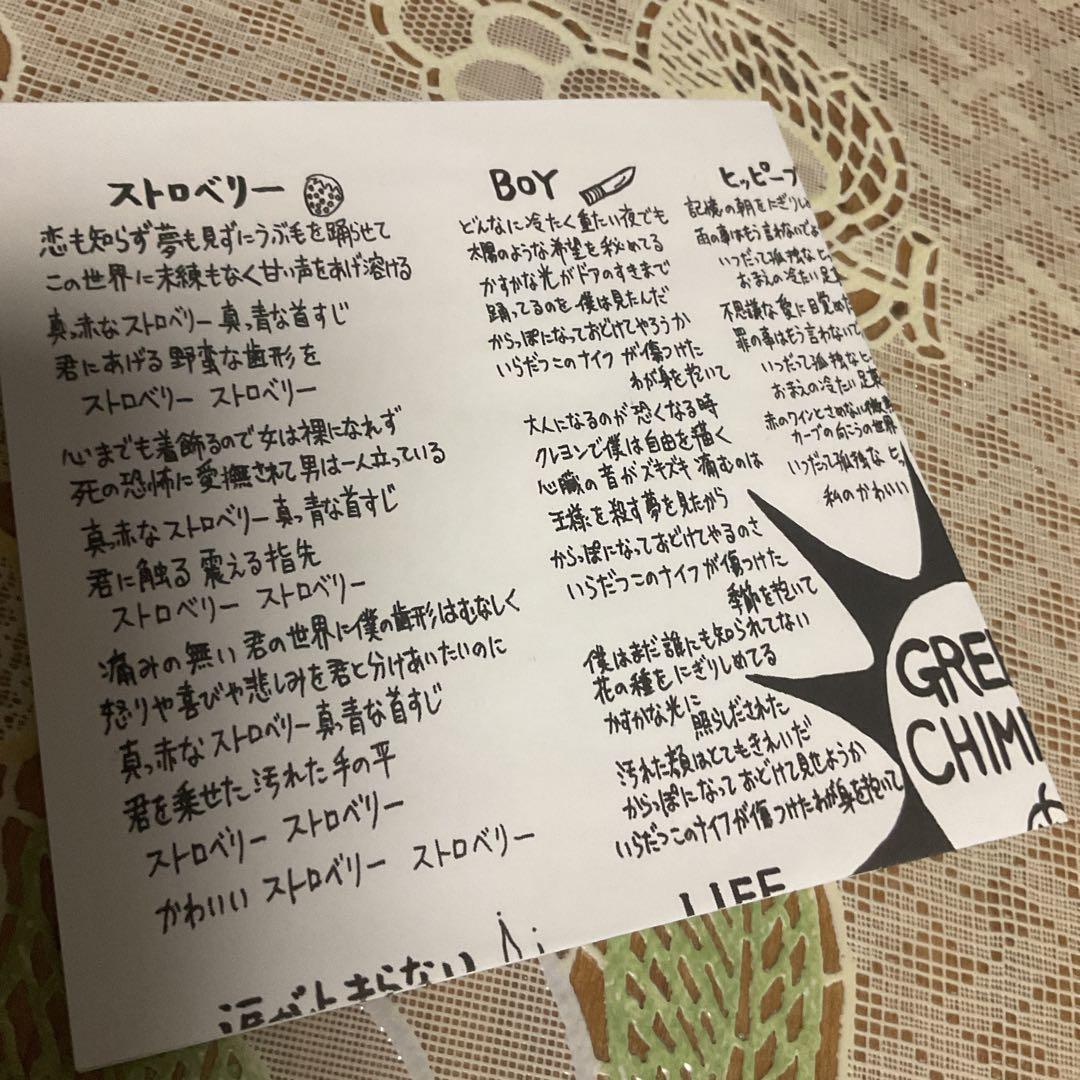 ストロベリー
恋も知らず夢も見ずにうぶ毛を踊らせて
この世界に未練もなく甘い声をあげ溶ける
真っ赤なストロベリー 真っ青な首すじ
君にあげる 野蛮な歯形を
ストロベリー ストロベリー
心までも着飾るので女は裸になれず
死の恐怖に愛撫されて男は一人立っている
真っ赤なストロベリー 真っ青な首すじ
君に触る 震える指先
ストロベリー ストロベリー
痛みの無い君の世界に僕の歯形はむなしく
怒りや喜びや悲しみを君と分けあいたいのに
真っ赤なストロベリー 真っ青な首すじ
君を乗せた汚れた手の平
ストロベリー ストロベリー
かわいい ストロベリー ストロベリー
BOY
どんなに冷たく重たい夜でも
太陽のような希望を秘めてる
かすかな光がドアのすきまで
踊ってるのを僕は見たんだ
からっぽになっておどけてやろうか
いらだつこのナイフが傷つけた
わが身を抱いて
大人になるのが恐くなる時
クレヨンで僕は自由を描く
心臓の音がズキズキ痛むのは
王様を殺す夢を見たから
からっぽになっておどけてやるのさ
いらだつこのナイフが傷つけた
季節を抱いて
僕はまだ誰にも知られてない
花の種をにぎりしめてる
かすかな光に
照らしだされた
汚れた頬はとてもきれいだ
からっぽになっておどけて見せようか
いらだつこのナイフが傷つけたわが身を抱いて
ヒッピー
記憶の朝をにぎりし
雨の事はもう言わないで
いつだって孤独な
おまえの冷たい足
不思議な愛に目覚め
罪の事はもう言わないで
いつだって孤独な
おまえの冷たい足
赤のワインとさめない微
カーブの向こうの世界
いつだって孤独な ヒッ
私のかわいい
GREE
CHIM
LIFE
涙がとまらない